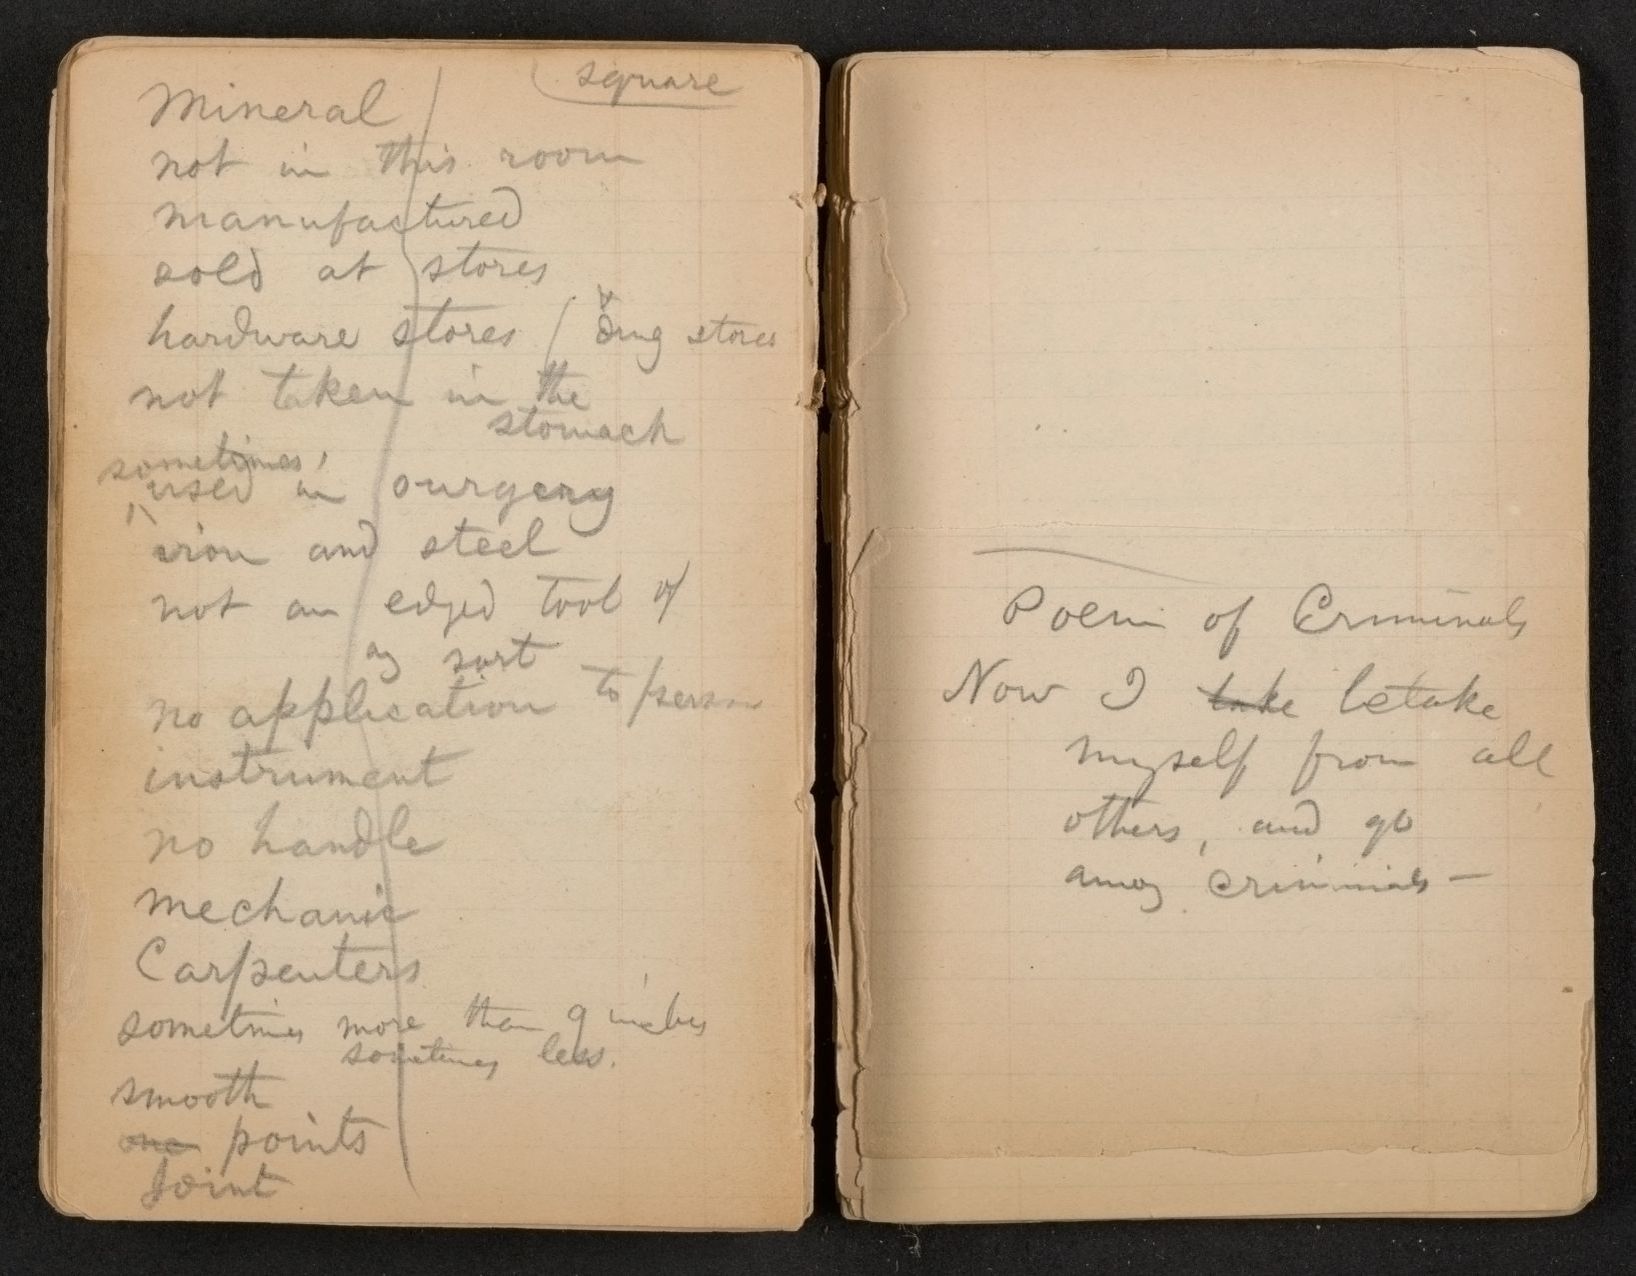 square
Mineral
not in this room
manufactured
sold at stores
hardware stores / drug stores
not taken in the
stomach
sometimes
used in surgery
iron and steel
not an edged tool of
any sort
no application to person
instrument
no handle
mechanic
Carpenters
sometimes more than 9 inches
sometimes less.
smooth
one points
Joint
Poem of Criminals
Now I take betake
myself from all
others, and go
among criminals —